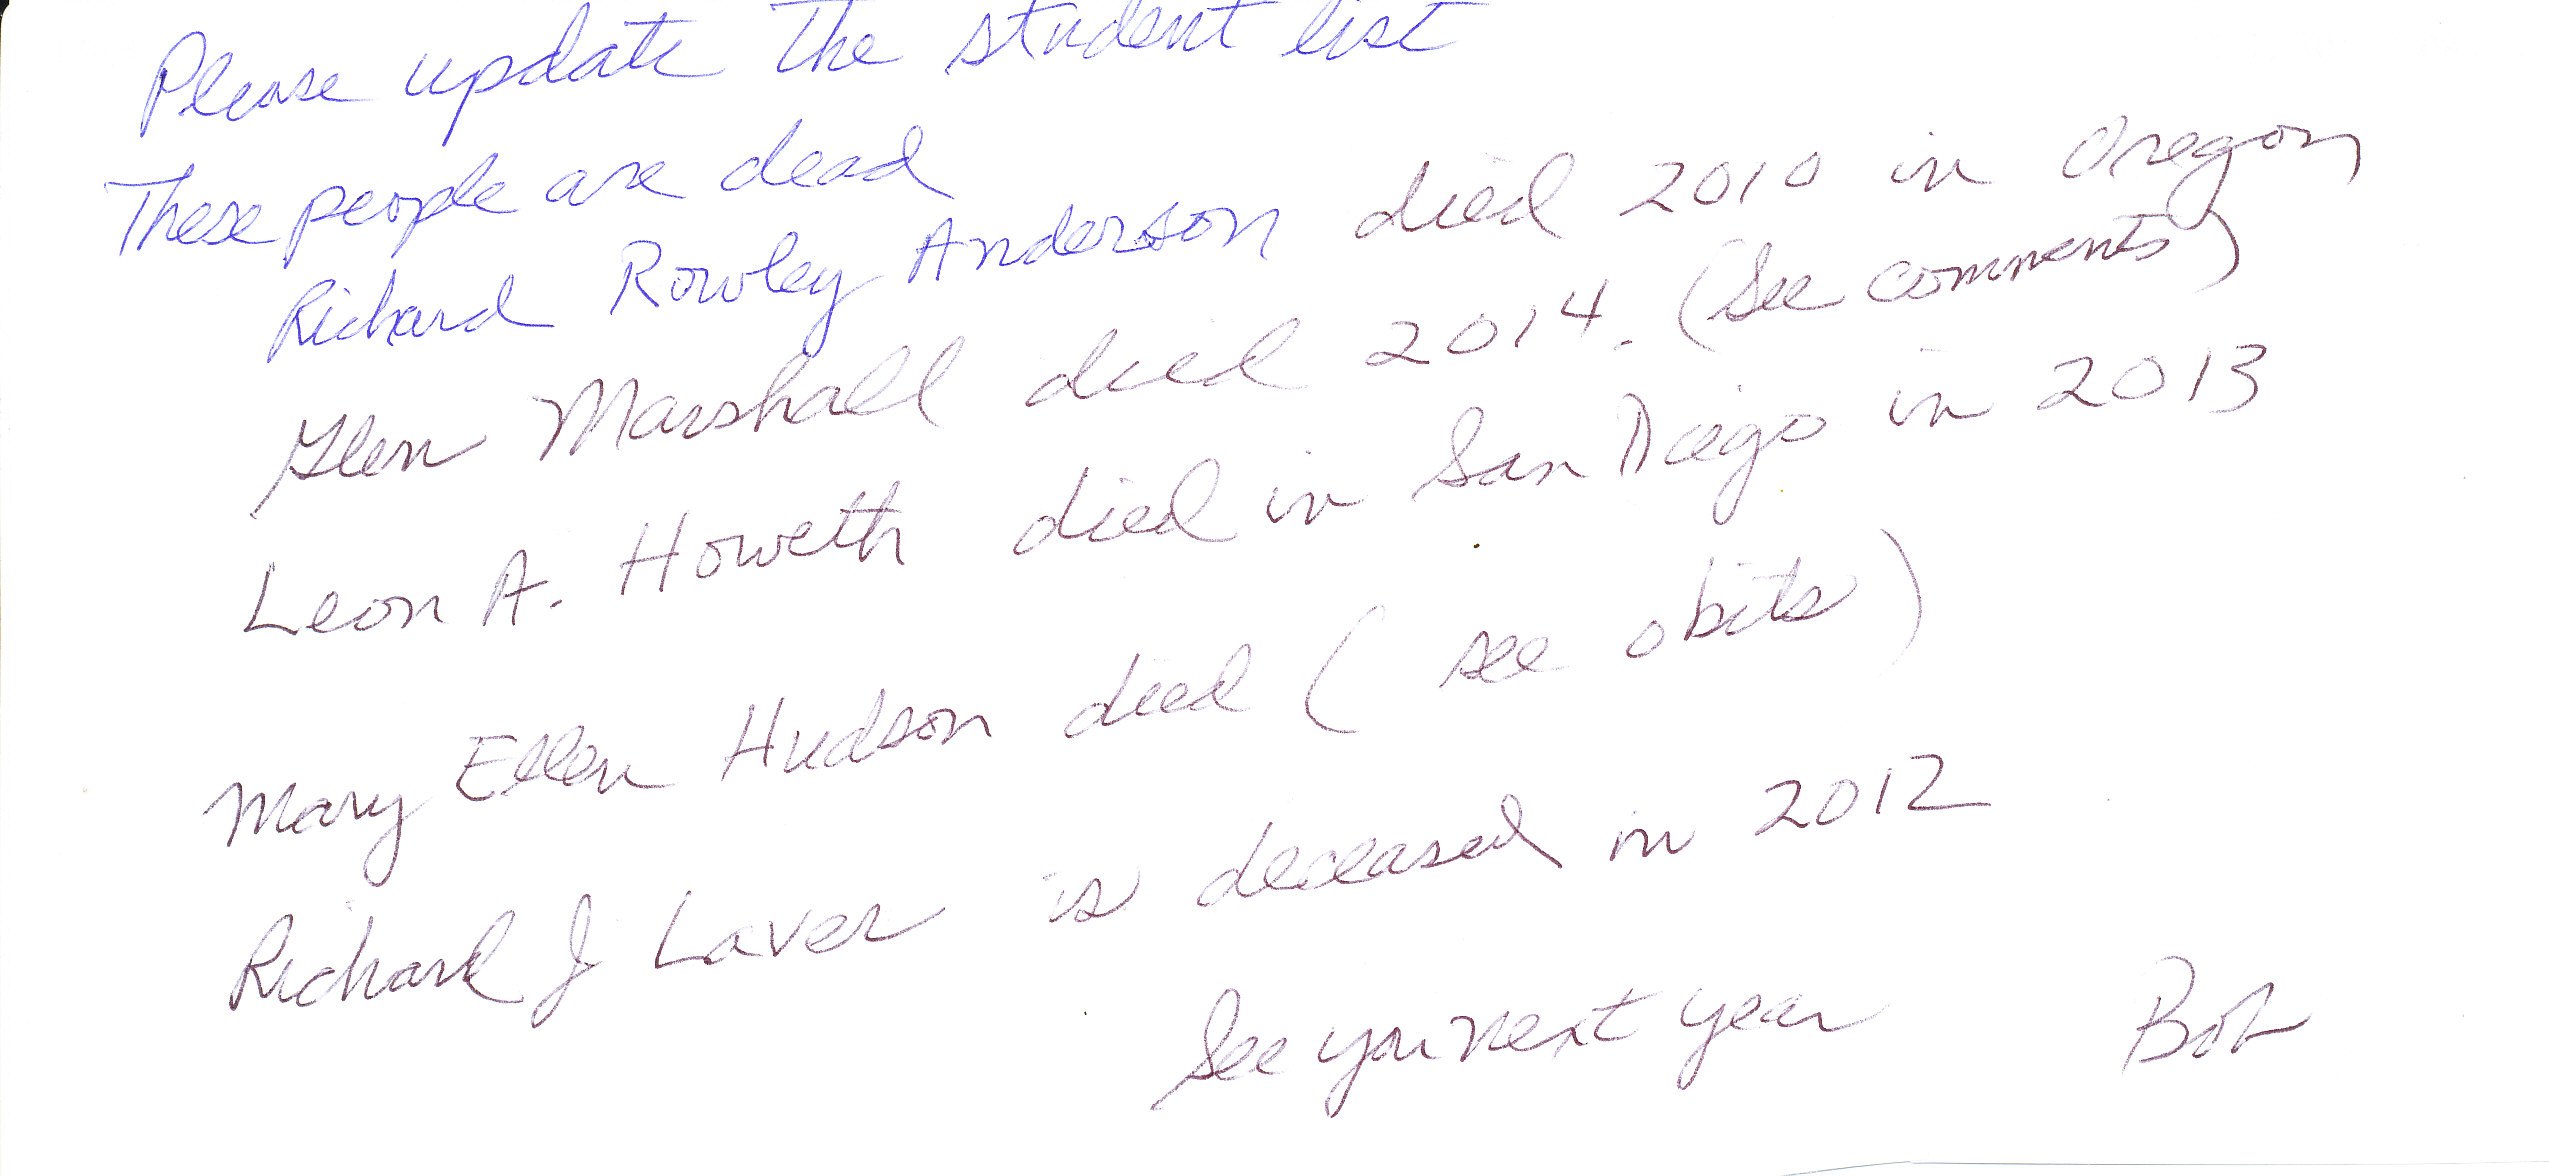 Please update the student list
These people are dead
Richard Rowley Anderson died 2010 in Oregon
Glen Marshall died 2014. (See comments)
Leon A. Howeth died in San Diego in 2013
Mary Ellen Hudson died ( see obits )
Richard J Laver is deceased in 2012
See you next year Bob